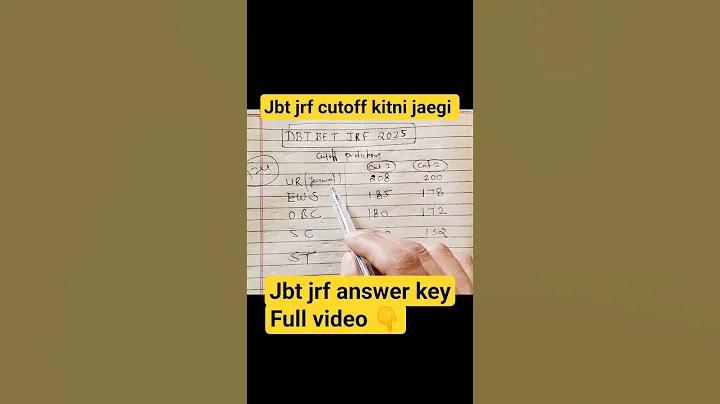 Jbt jrf cutoff kitni jaegi
DBT BET JRF 2025
Cutoff prediction
Cat 1 Cat 2
UR (General) 208 200
EWS 185 178
OBC 180 172
SC 152
ST
Jbt jrf answer key
Full video 👇